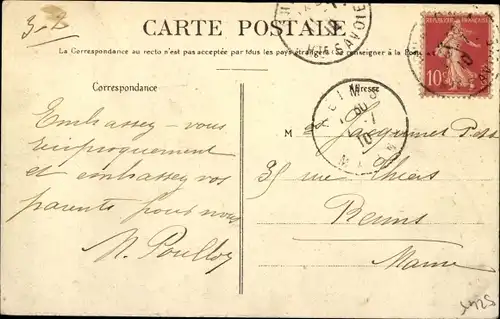 3-2
CARTE POSTALE
La Correspondance au recto n'est pas acceptée par tous les pays étrangers (se renseigner à la Poste)
SAVOIE
REPUBLIQUE FRANÇAISE
10c
Correspondance
Adresse
REIMS
10
Embrassez-vous
réciproquement
et embrassez vos
parents pour nous
M Jacquinet
35 rue Thiers
Reims
Marne